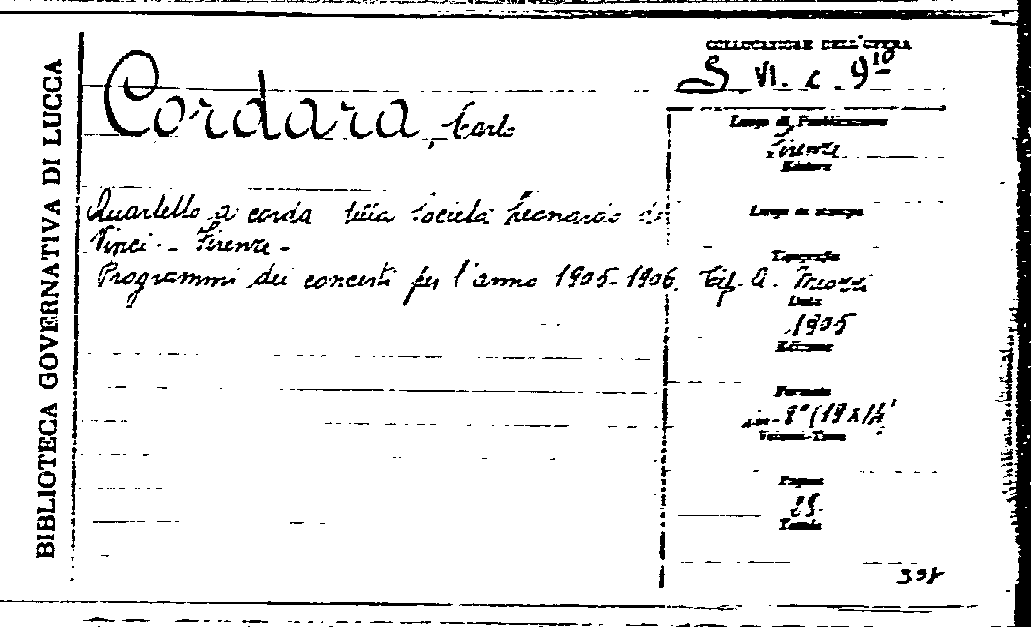 BIBLIOTECA GOVERNATIVA DI LUCCA
COLLOCAZIONE DELL'OPERA
S VI. c. 9¹⁰
Cordara, Carlo
Luogo di Pubblicazione
Firenze
Editore
Quartetto a corda della Società Leonardo da
Vinci - Firenze -
Luogo di stampa
Tipografia
Programmi dei concerti per l'anno 1905-1906. Tip. G.
Data
1905
Edizione
Formato
8° (19 x 14
Volumi-Tomo
Pagine
Tavole